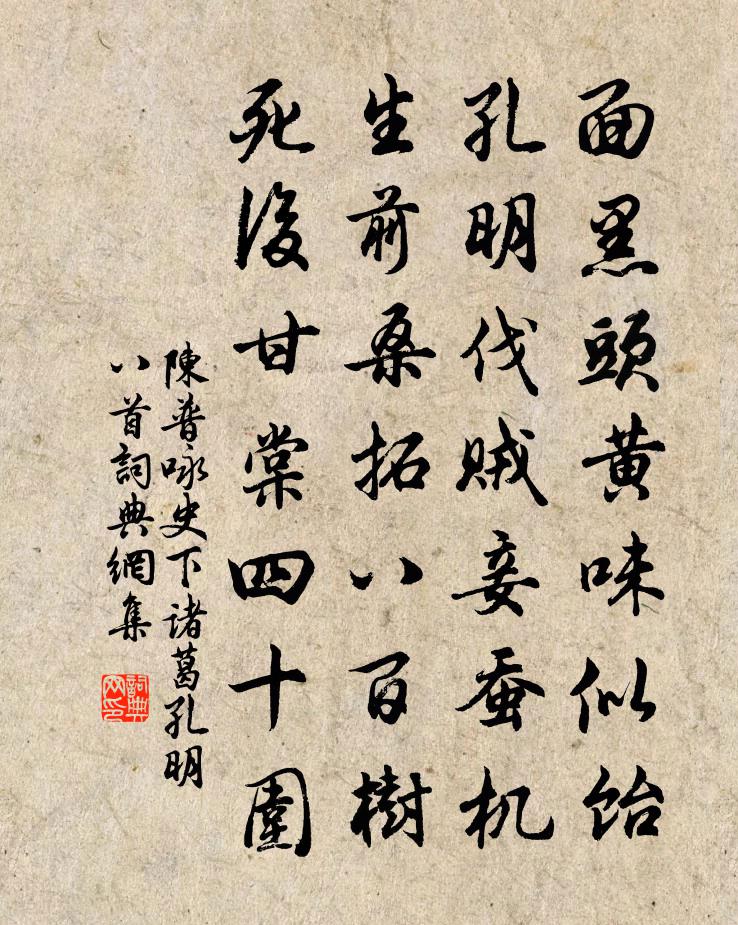 面黑頭黄味似飴
孔明伐賊妾蚕机
生前桑拓八百樹
死後甘棠四十圍
陳普咏史下诸葛孔明
八首詞典網集
詞典网印